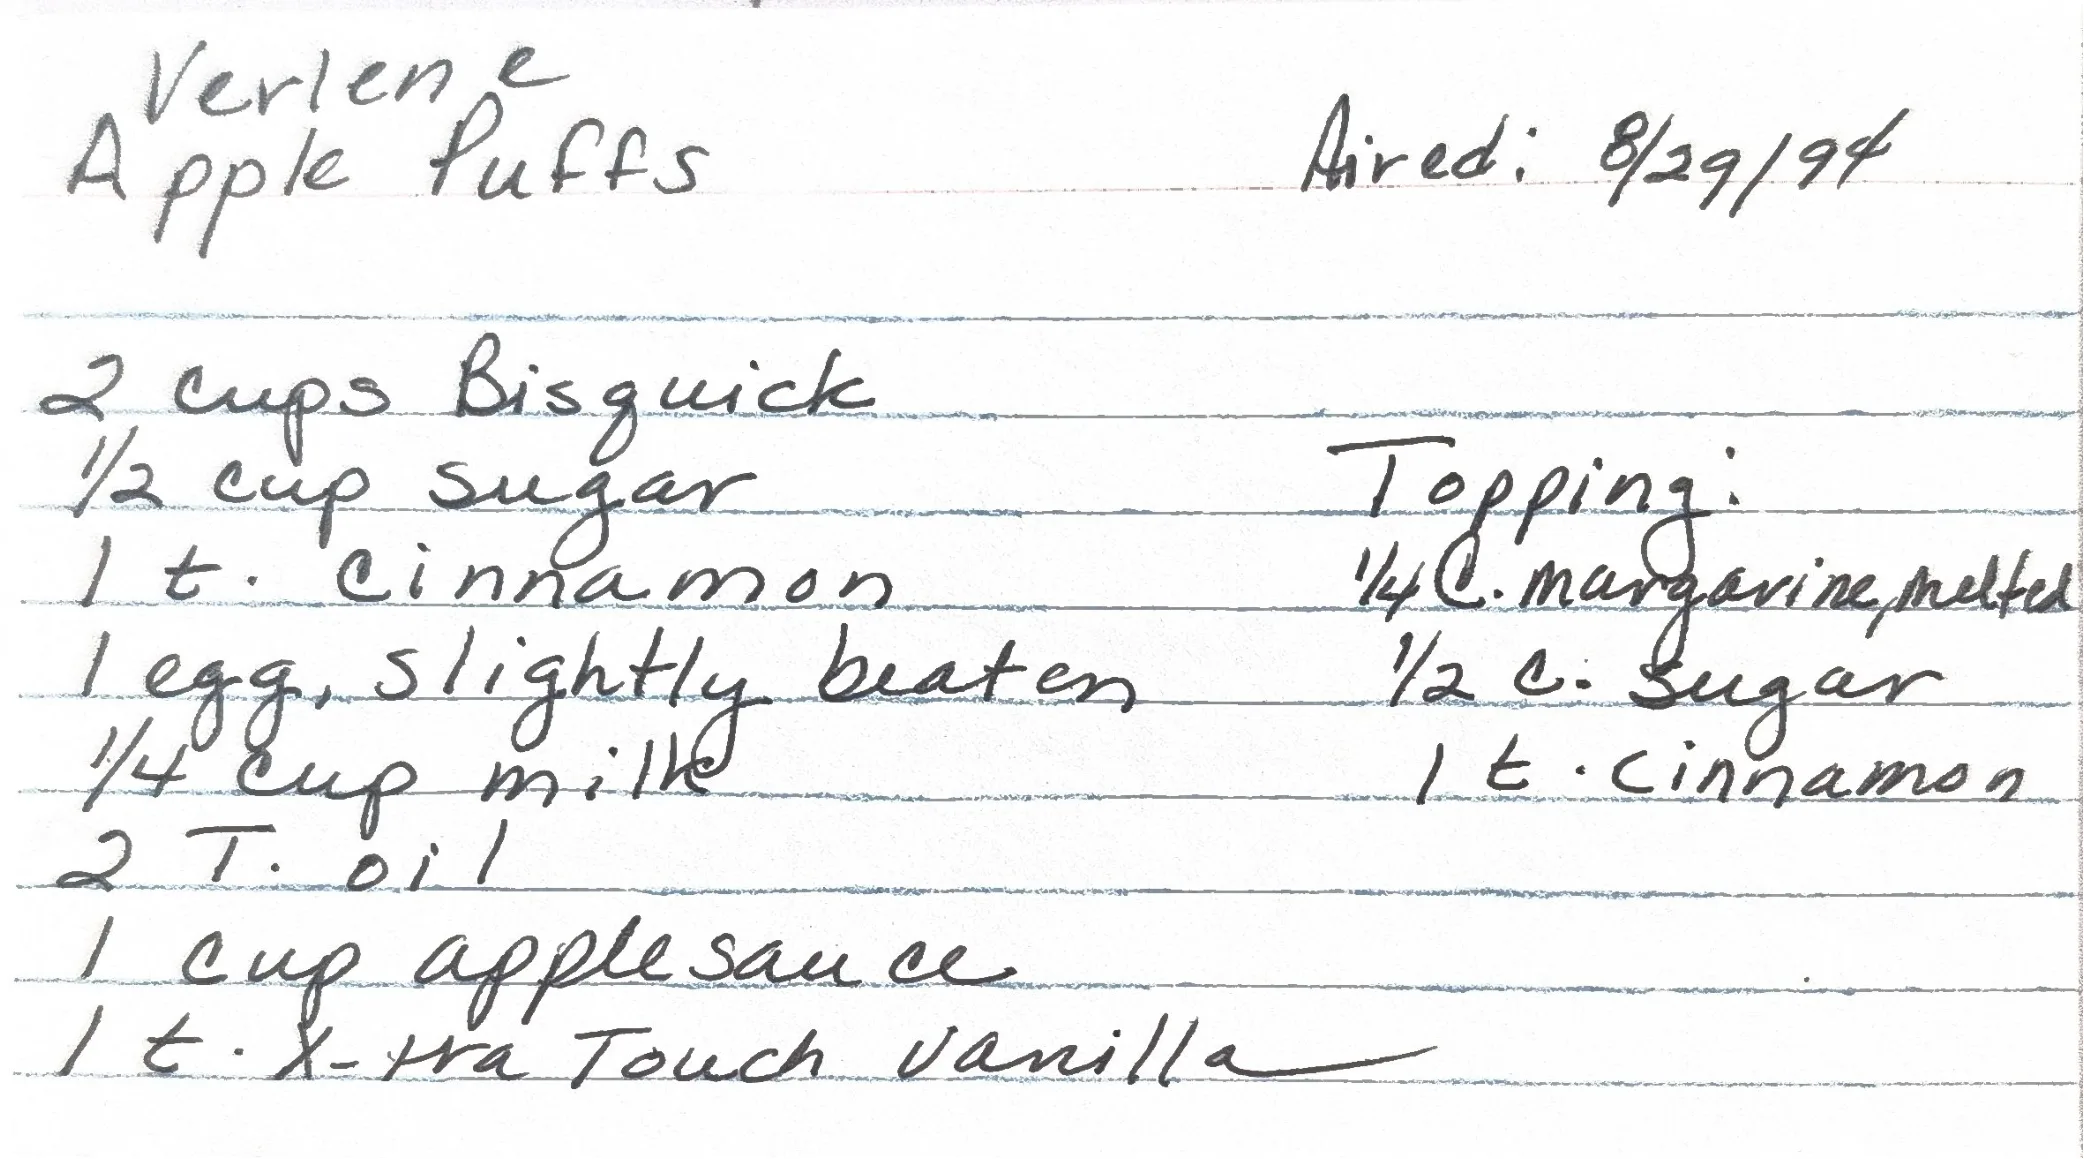 Verlene
Apple Puffs
Aired: 8/29/94
2 cups Bisquick
1/2 cup sugar
1 t. cinnamon
1 egg, slightly beaten
1/4 cup milk
2 T. oil
1 cup applesauce
1 t. X-tra Touch vanilla
Topping:
1/4 C. margarine, melted
1/2 c. sugar
1 t. cinnamon